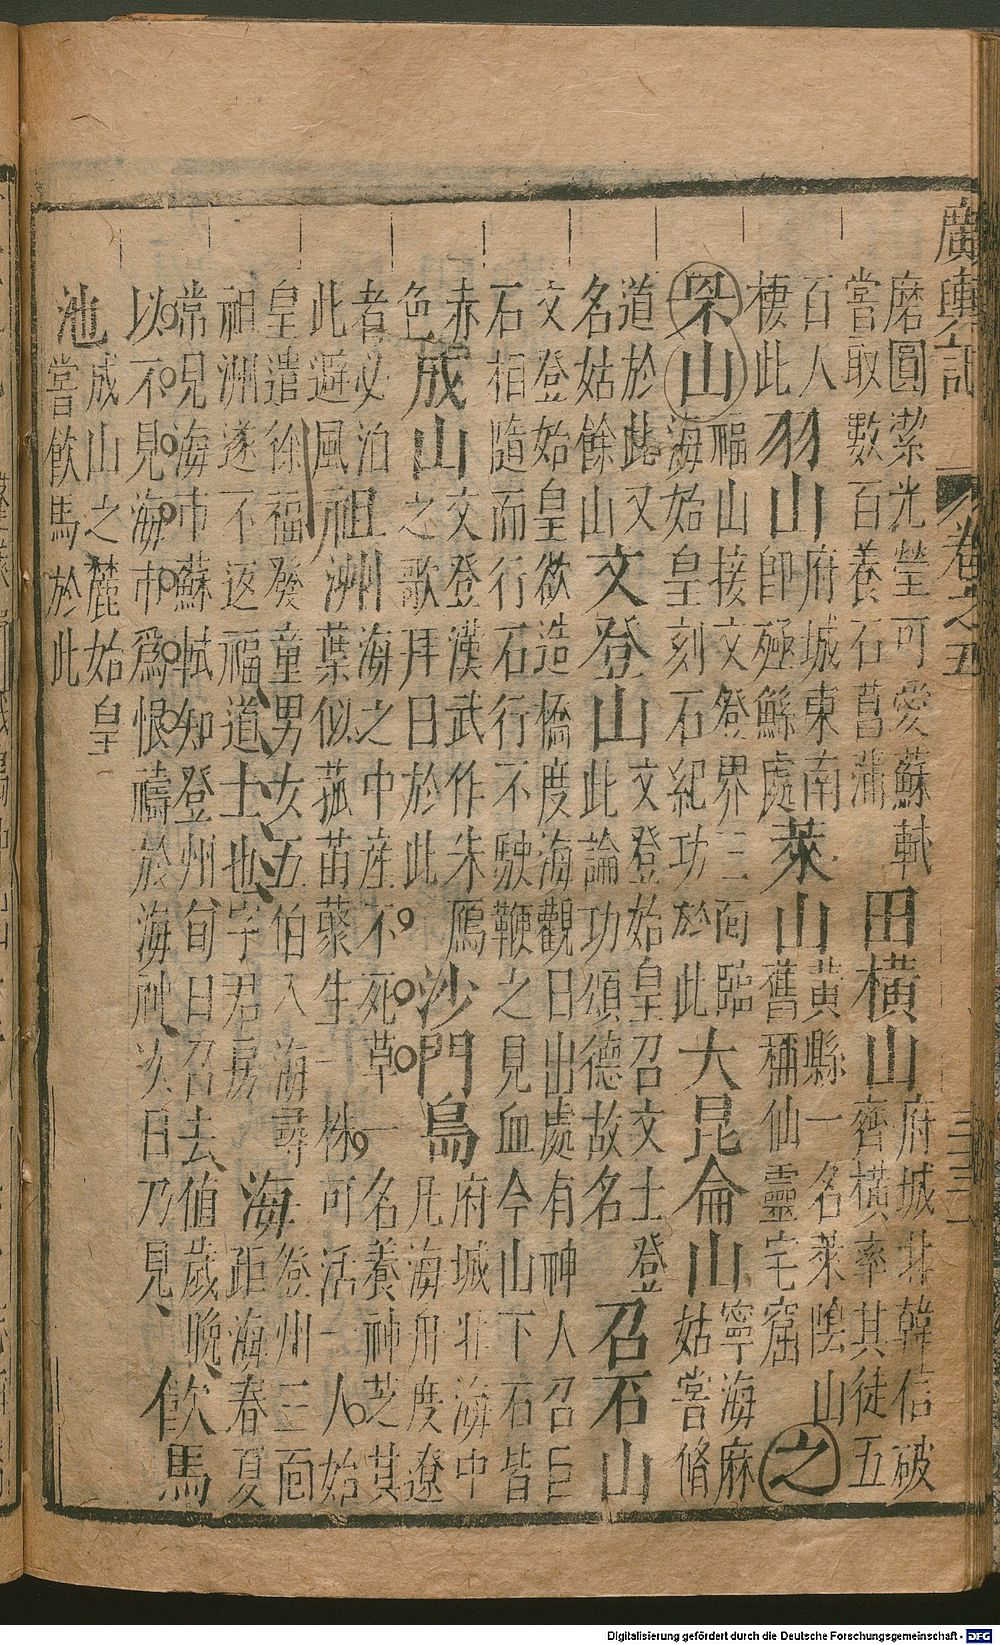 廣輿記 卷之五
磨圓潔光瑩可愛蘇軾嘗取數百養石菖蒲 田橫山 府城北韓信破齊橫率其徒五
百人棲此 羽山 府城東南即殛鯀處 萊山 黃縣一名萊陰山舊稱仙靈宅窟 之
罘山 福山接文登界三面臨海始皇刻石紀功於此 大昆侖山 寧海麻姑嘗脩
道於此又名姑餘山 文登山 文登始皇召文士登此論功頌德故名 召石山
文登始皇欲造橋度海觀日出處有神人召巨石相隨而行石行不駛鞭之見血今山下石皆
赤色 成山 文登漢武作朱鴈之歌拜日於此 沙門島 府城北海中凡海舟度遼
者必泊此避風 祖洲 海之中產不死草一名養神芝其葉似菰苗叢生一株可活一人始
皇遣徐福發童男女五伯入海尋祖洲遂不返福道士也字君房 海 登州三面距海春夏
常見海市蘇軾知登州旬日召去值歲晚以不見海市爲恨禱於海神次日乃見 飲馬
池 成山之麓始皇嘗飲馬於此
Digitalisierung gefördert durch die Deutsche Forschungsgemeinschaft - DFG